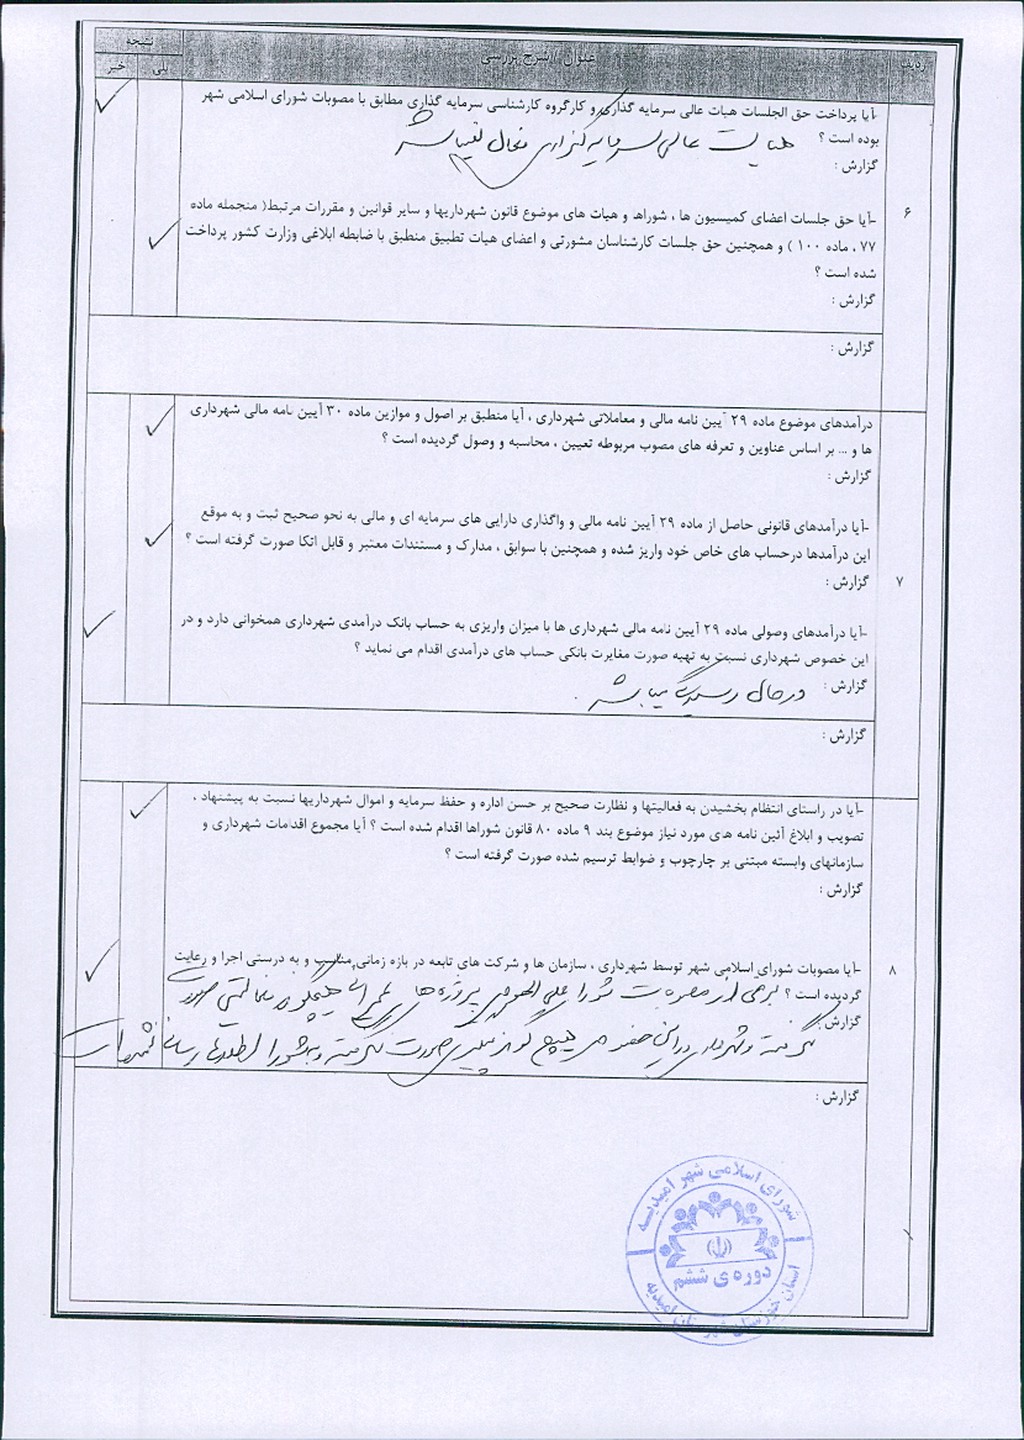 ردیف
عنوان / شرح بررسی
نتیجه
بلی
خیر
-آیا پرداخت حق الجلسات هیات عالی سرمایه گذاری و کارگروه کارشناسی سرمایه گذاری مطابق با مصوبات شورای اسلامی شهر
بوده است ؟
هیات عالی سرمایه گذاری فعال نمیباشد
گزارش :
۶
-آیا حق جلسات اعضای کمیسیون ها ، شوراها و هیات های موضوع قانون شهرداریها و سایر قوانین و مقررات مرتبط( منجمله ماده
۷۷ ، ماده ۱۰۰ ) و همچنین حق جلسات کارشناسان مشورتی و اعضای هیات تطبیق منطبق با ضابطه ابلاغی وزارت کشور پرداخت
شده است ؟
گزارش :
گزارش :
۷
درآمدهای موضوع ماده ۲۹ آیین نامه مالی و معاملاتی شهرداری ، آیا منطبق بر اصول و موازین ماده ۳۰ آیین نامه مالی شهرداری
ها و ... بر اساس عناوین و تعرفه های مصوب مربوطه تعیین ، محاسبه و وصول گردیده است ؟
گزارش :
-آیا درآمدهای قانونی حاصل از ماده ۲۹ آیین نامه مالی و واگذاری دارایی های سرمایه ای و مالی به نحو صحیح ثبت و به موقع
این درآمدها درحساب های خاص خود واریز شده و همچنین با سوابق ، مدارک و مستندات معتبر و قابل اتکا صورت گرفته است ؟
گزارش :
-آیا درآمدهای وصولی ماده ۲۹ آیین نامه مالی شهرداری ها با میزان واریزی به حساب بانک درآمدی شهرداری همخوانی دارد و در
این خصوص شهرداری نسبت به تهیه صورت مغایرت بانکی حساب های درآمدی اقدام می نماید ؟
گزارش : درحال رسیدگی میباشد .
گزارش :
۸
-آیا در راستای انتظام بخشیدن به فعالیتها و نظارت صحیح بر حسن اداره و حفظ سرمایه و اموال شهرداریها نسبت به پیشنهاد ،
تصویب و ابلاغ آئین نامه های مورد نیاز موضوع بند ۹ ماده ۸۰ قانون شوراها اقدام شده است ؟ آیا مجموع اقدامات شهرداری و
سازمانهای وابسته مبتنی بر چارچوب و ضوابط ترسیم شده صورت گرفته است ؟
گزارش :
-آیا مصوبات شورای اسلامی شهر توسط شهرداری ، سازمان ها و شرکت های تابعه در بازه زمانی مناسب و به درستی اجرا و رعایت
گردیده است ؟ برخی از مصوبات شورا علی الخصوص پروژه های عمرانی هیچگونه صورت
گزارش : نگرفته و شهرداری در این خصوص هیچ گونه پیگیری صورت نگرفته و به شورا اطلاع رسانی ننموده است
گزارش :
شورای اسلامی شهر امیدیه
دوره ی ششم
استان خوزستان شهرستان امیدیه